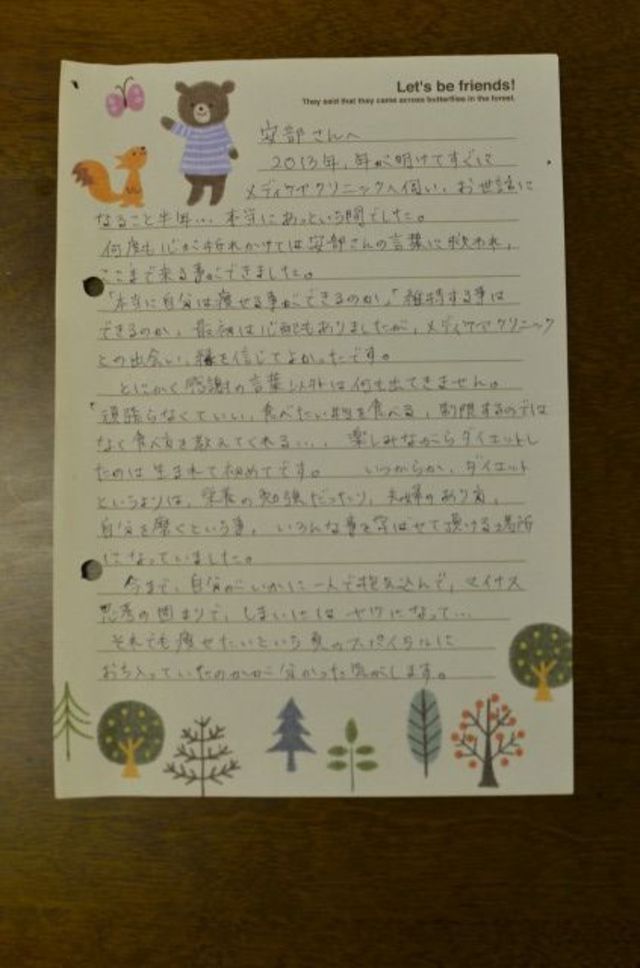 Let's be friends!
They said that they came across butterflies in the forest.
安部さんへ
2013年、年が明けてすぐに
メディケアクリニックへ伺い、お世話に
なること半年… 本当にあっという間でした。
何度も心が折れかけては安部さんの言葉に救われ、
ここまで来る事ができました。
「本当に自分は痩せる事ができるのか」「維持する事は
できるのか、最初は心配もありましたが、メディケアクリニック
との出会い、縁を信じてよかったです。
とにかく感謝の言葉以外は何も出てきません。
頑張らなくていい、食べたい物を食べる、制限するのでは
なく食べ方を教えてくれる…、楽しみながらダイエットし
たのは生まれて初めてです。 いつからか、ダイエット
というよりは、栄養の勉強だったり、夫婦のあり方、
自分を磨くという事、いろんな事を学ばせて頂ける場所
になっていました。
今まで、自分がいかに一人で抱え込んで、マイナス
思考の固まりで、しまいにはヤケになって…
それでも痩せたいという負のスパイラルに
おち入っていたのかが分かった気がします。